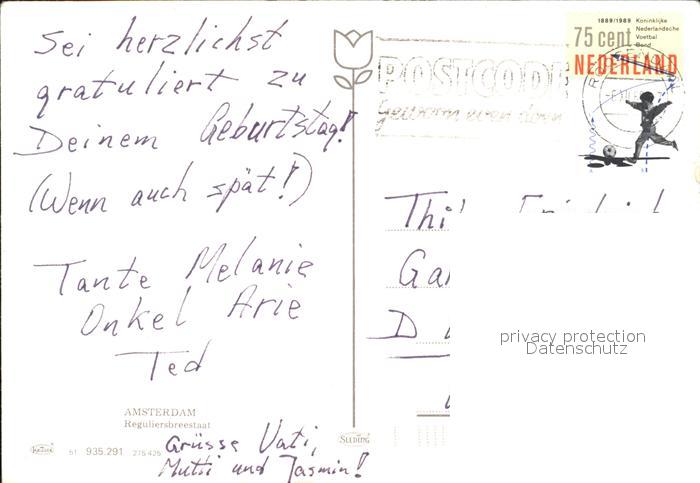 sei herzlichst
gratuliert zu
Deinem Geburtstag!
(Wenn auch spät!)
Tante Melanie
Onkel Arie
Ted
AMSTERDAM
Reguliersbreestaat
51 935.291 275.425
Grüsse Vati,
Mutti und Jasmin!
1889/1989 Koninklijke
Nederlandsche
Voetbal
Bond
75 cent
NEDERLAND
POSTCODE
gewoon even doen
privacy protection
Datenschutz